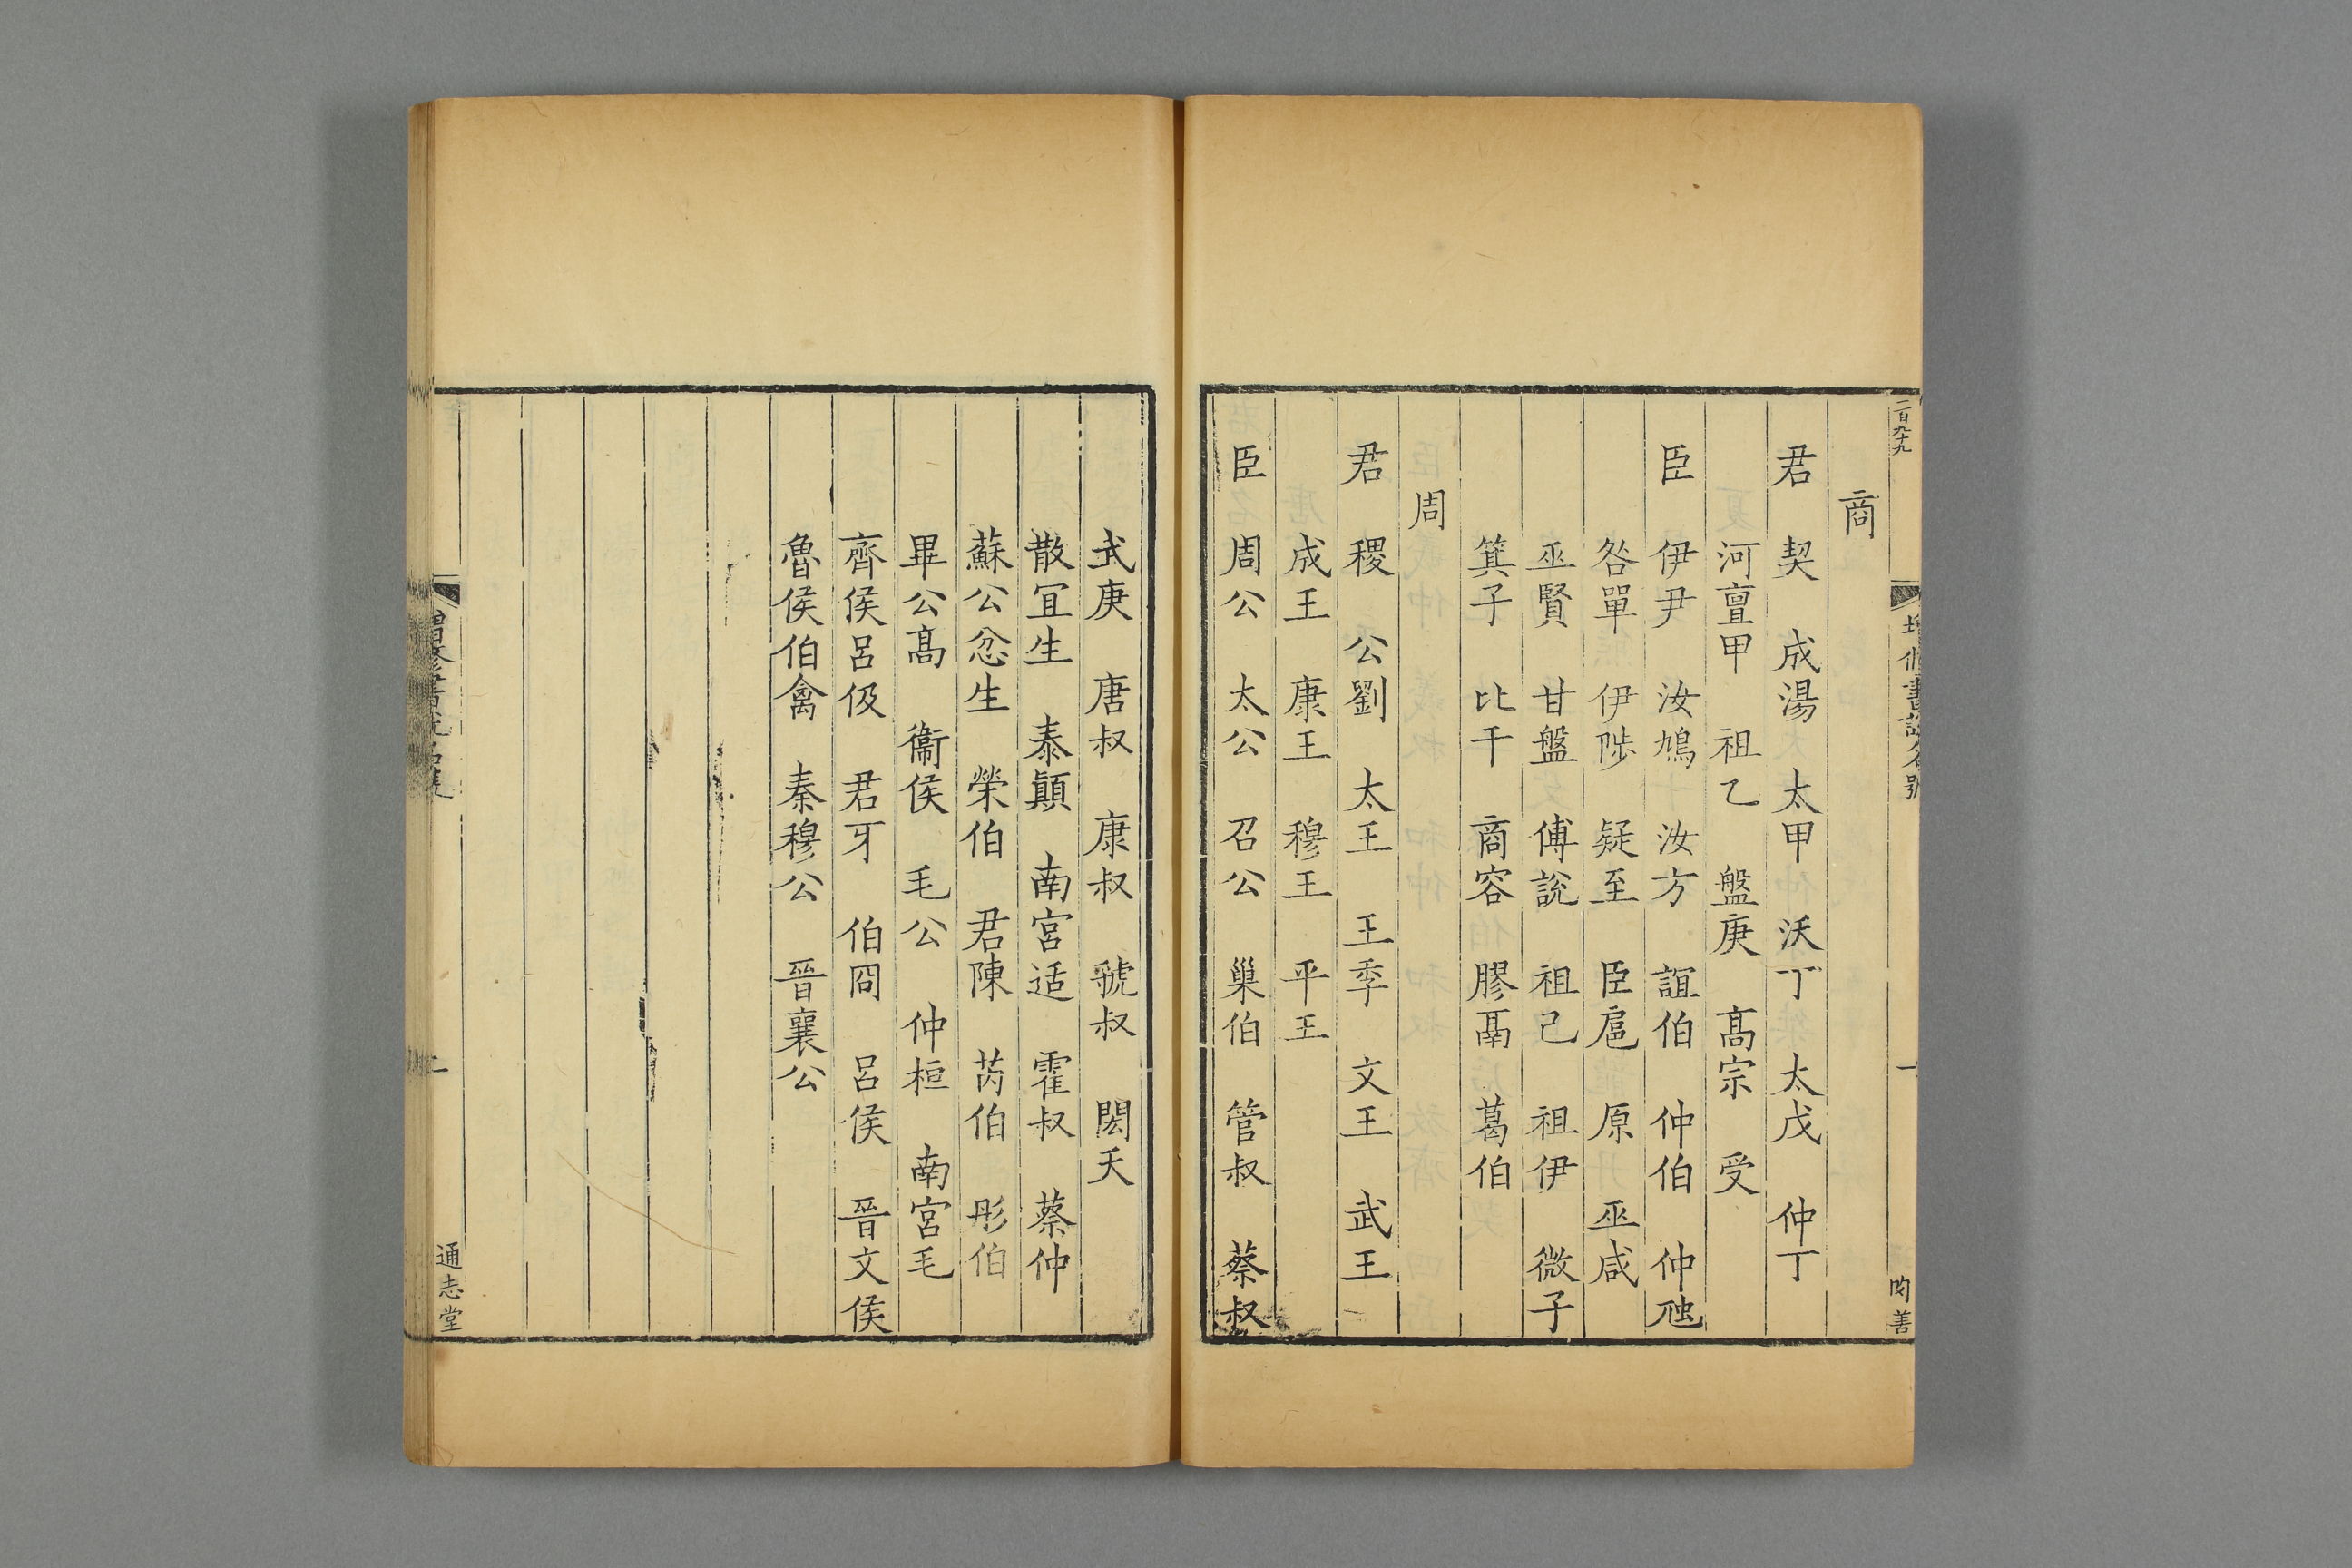 二百九十九
商
君　契　成湯　太甲　沃丁　太戊　仲丁
河亶甲　祖乙　盤庚　高宗　受
臣　伊尹　汝鳩　汝方　誼伯　仲伯　仲虺
咎單　伊陟　疑至　臣扈　原　巫咸
巫賢　甘盤　傅說　祖己　祖伊　微子
箕子　比干　商容　膠鬲　葛伯
周
君　稷　公劉　太王　王季　文王　武王
成王　康王　穆王　平王
臣　周公　太公　召公　巢伯　管叔　蔡叔
武庚　唐叔　康叔　虢叔　閎夭
散宜生　泰顛　南宮适　霍叔　蔡仲
蘇公忿生　榮伯　君陳　芮伯　彤伯
畢公高　衞侯　毛公　仲桓　南宮毛
齊侯呂伋　君牙　伯冏　呂侯　晉文侯
魯侯伯禽　秦穆公　晉襄公
增修書說名號
一
二
通志堂